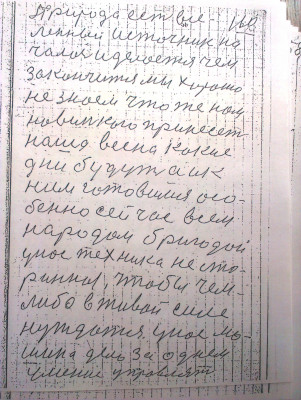 Природа есть все- 160
ленный источник на
чало и делается чем
закончится мы хорошо
не знаем что же нам
новинкого принесет
наша весна какие
дни будут а и к
ним готовимся осо-
бенно сейчас всем
народом бригодой
унас техника не ста-
ринны, чтобы чем-
либо в живой силе
нуждатся унас ма-
шына дело за однем
умение управлят